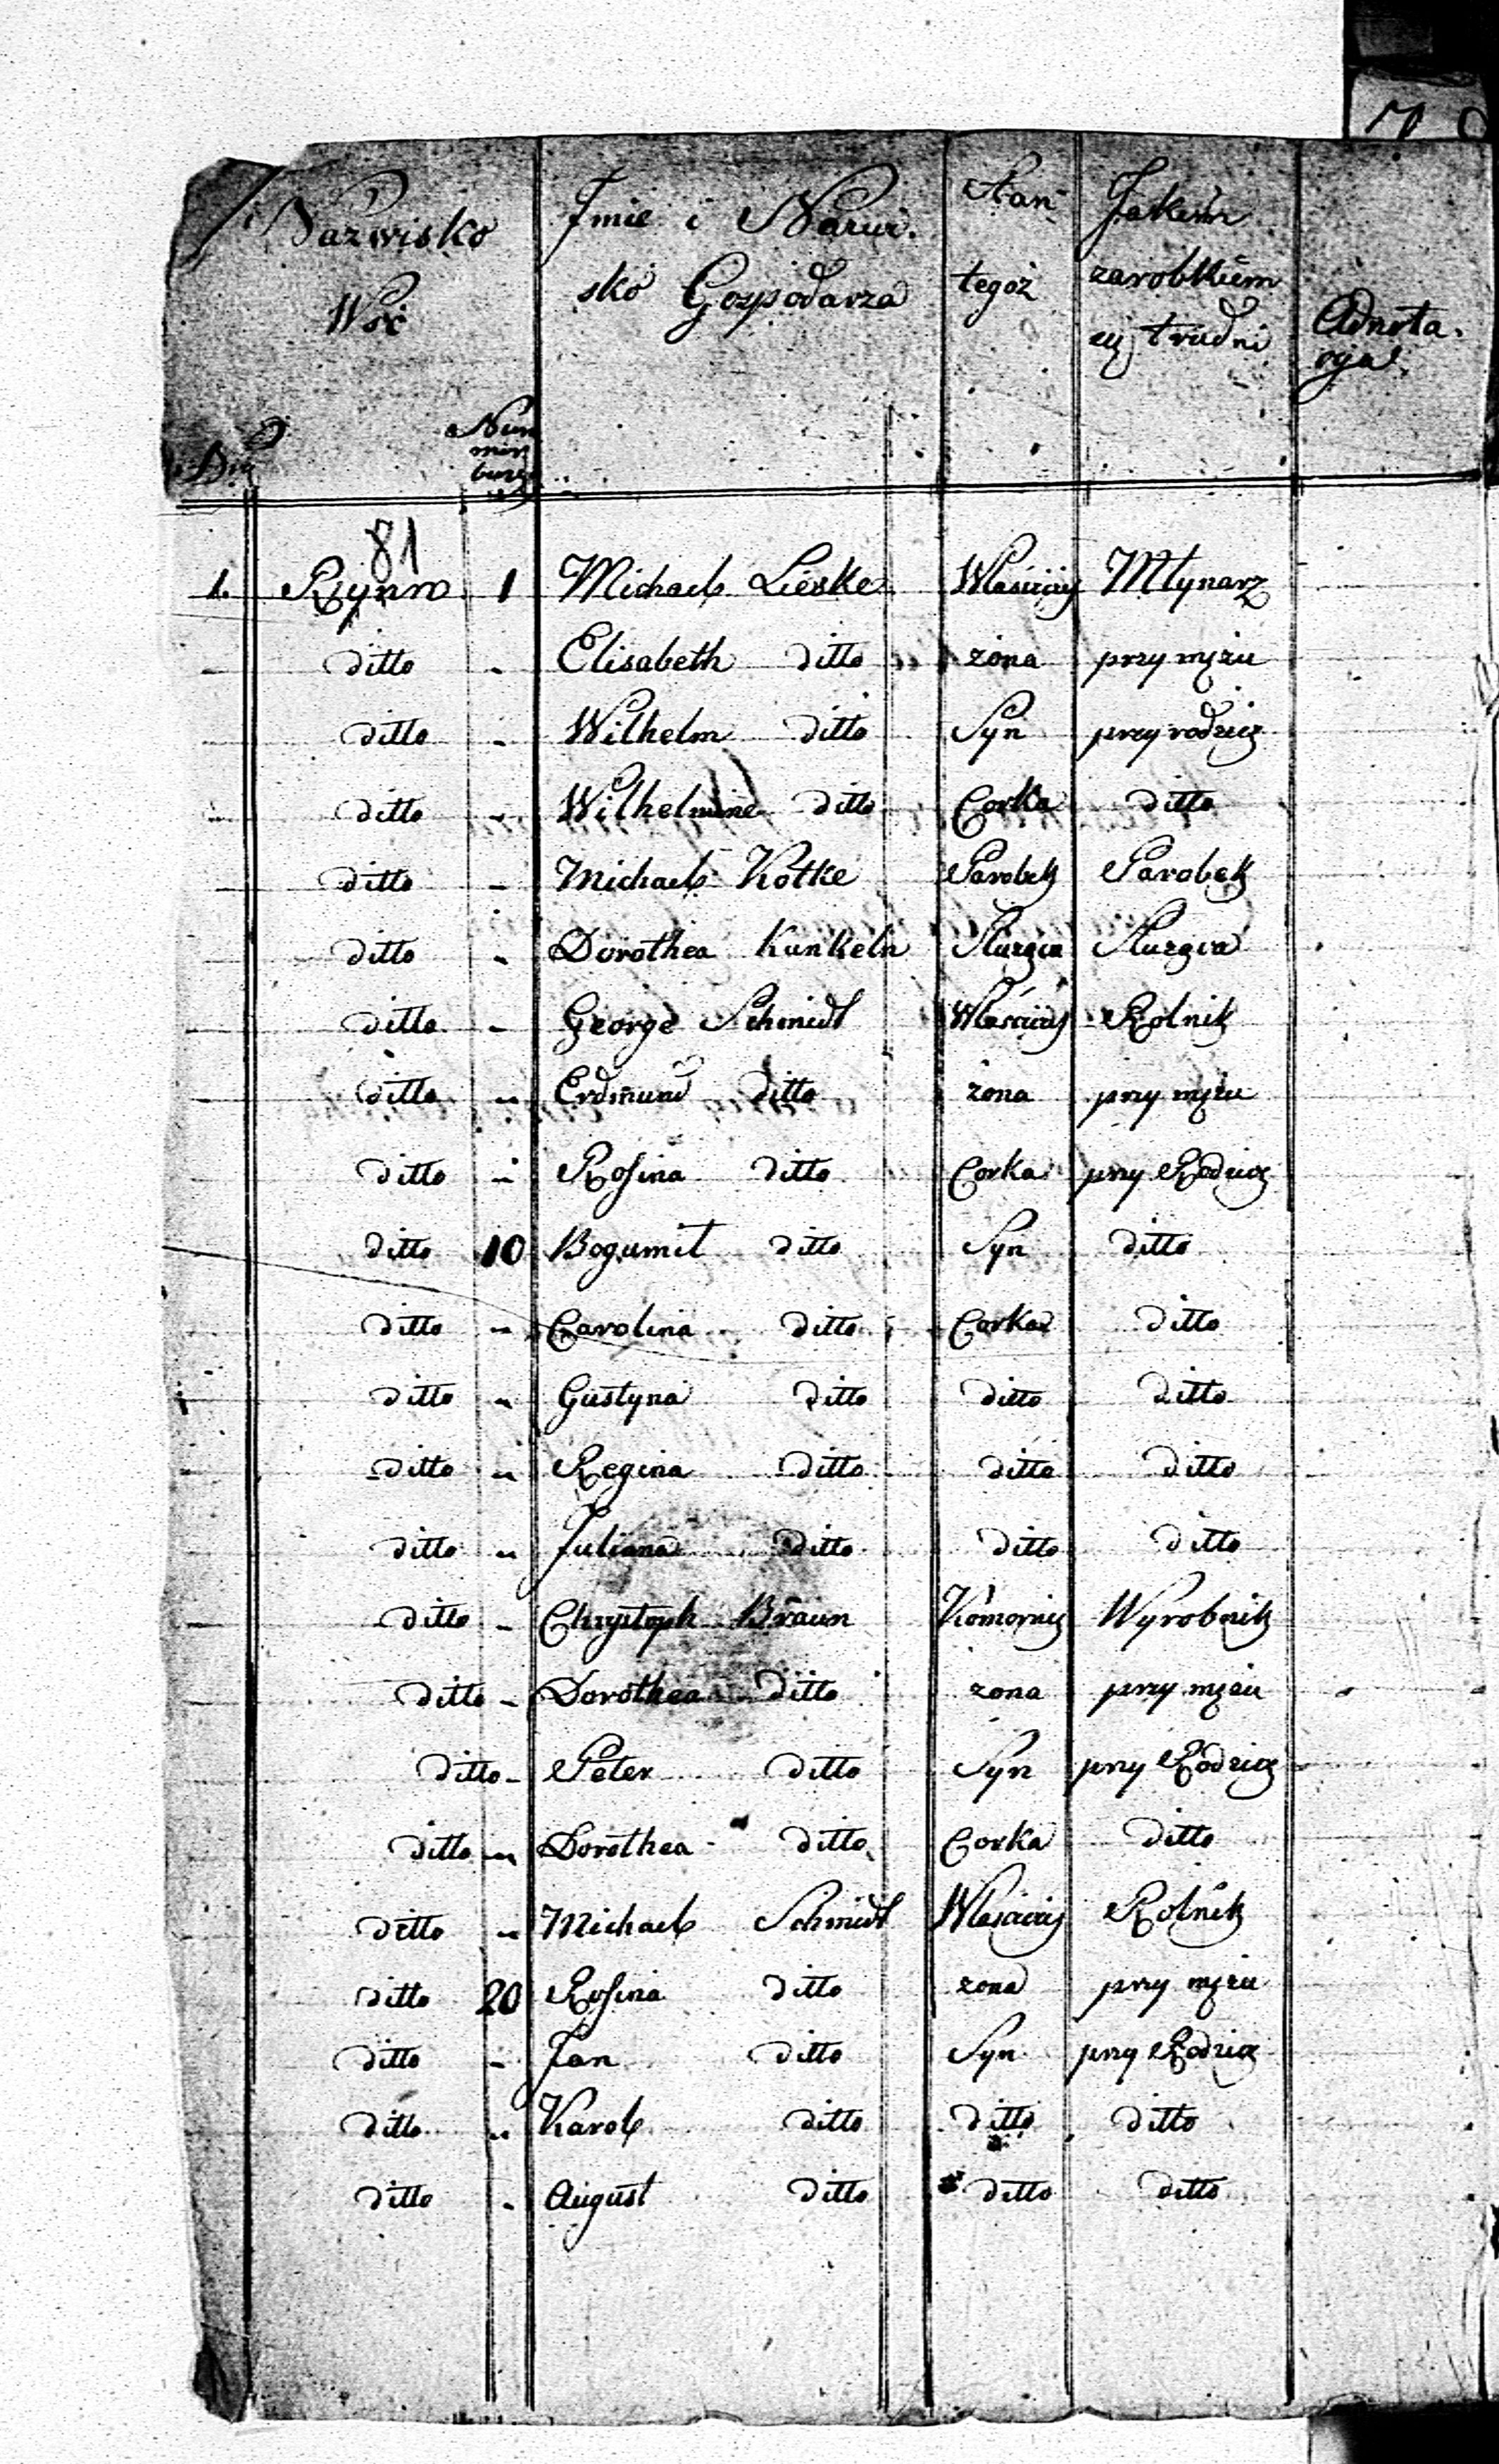 Nazwisko Wsi
Imie i Nazwi.
sko Gospodarza
Stan
tegoż
Jakiem
zarobkiem
się trudni
Adnota.
cyja
81
1. Rynn 1 Michael Lieske Właściciel Młynarz
ditto - Elisabeth ditto żona przy mężu
ditto - Wilhelm ditto Syn przy rodzicz
ditto - Wilhelmine ditto Corka ditto
ditto - Michael Kotke Parobek Parobek
ditto - Dorothea Kunkeln Sluzgca Sluzgca
ditto - George Schmidt Właściciel Rolnik
ditto - Erdmund ditto żona przy mężu
ditto - Rosina ditto Corka przy Rodzicz
ditto 10 Bogumil ditto Syn ditto
ditto - Carolina ditto Corka ditto
ditto - Gustyna ditto ditto ditto
ditto - Regina ditto ditto ditto
ditto - Juliana ditto ditto ditto
ditto - Chrystoph Braun Komornik Wyrobnik
ditto - Dorothea ditto zona przy mężu
ditto - Peter ditto Syn przy Rodzicz
ditto - Dorothea ditto Corka ditto
ditto - Michael Schmidt Właściciel Rolnik
ditto 20 Rosina ditto zona przy mężu
ditto - Jan ditto Syn przy Rodzicz
ditto - Karol ditto ditto ditto
ditto - August ditto ditto ditto